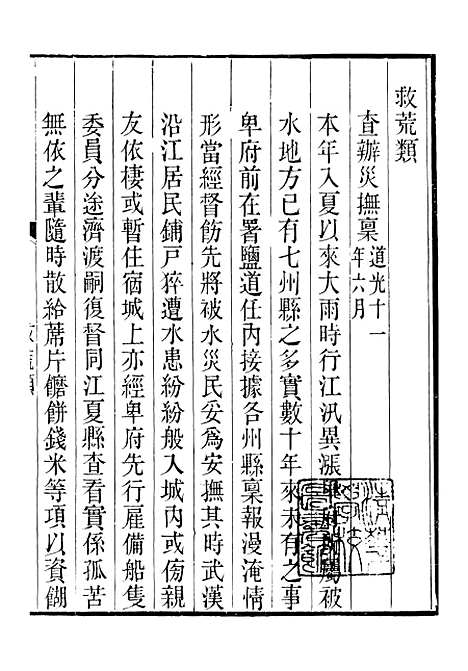 救荒類
查辦災撫稟道光十一年六月
本年入夏以來大雨時行江汛異漲卑府所屬被
水地方已有七州縣之多實數十年來未有之事
卑府前在署鹽道任內接據各州縣稟報漫淹情
形當經督飭先將被水災民妥為安撫其時武漢
沿江居民鋪戶猝遭水患紛紛般入城內或傍親
友依棲或暫住宿城上亦經卑府先行雇備船隻
委員分途濟渡嗣復督同江夏縣查看實係孤苦
無依之輩隨時散給蓆片饝餅錢米等項以資餬